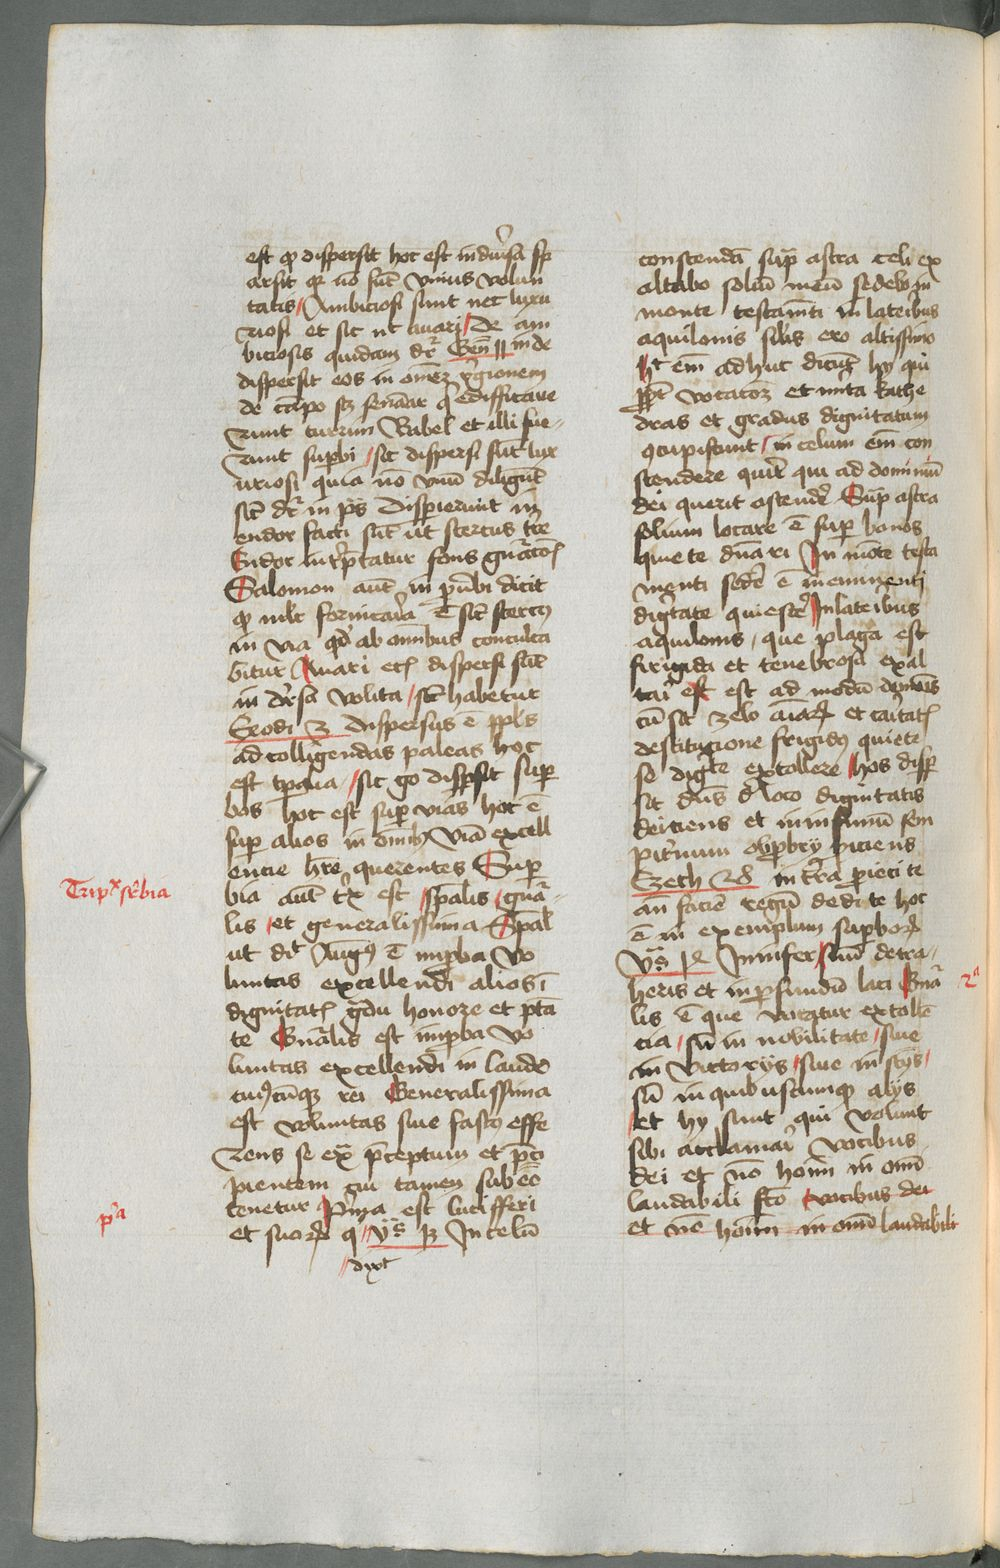 est qd dispersit hoc est in diu'sa sp
arsit qr nō sūt vnius volun
tatis / Ambiciosi sunt nec luxu
riosi et sic nt auari / de am
biciosis quidam dr̄ Geñ 11 inde
dispersit eos in om̄eȝ regionem
de cāpo
runt turrim Babel et illi fue-
runt sup̄bi / sic dispersi sūt lux
uriosi quia nō vnū diligūt
sic dr̄ in ps Disperierunt in
endor facti sūt ut stercus tr̄e
Endor int'pretatur fons gn̄atōis
Salomon aut̄ in p̄u'bi dicit
qd mlr̄ fornicaria ē sic stercꝰ
in via qd ab omibus conculca
bitur Auari eciā dispersi sūt
in diu'sa volūta / sic habetur
Exodi 3 dispersus ē pp̄ls
ad colligendas paleas hoc
est tpālia / sic go disp̄sit sup̄
bos hoc est sup̄ vias hoc ē
sup̄ alios in omībꝫ viā excell
encie hr̄e querentes Sup̄
bia aut̄ t'x est / sp̄alis / gn̄a
lis / et generalissima Sp̄al
ut dt Augꝰ ē imp̄ba vo
luntas excellendi alios ī
dignitatꝫ gradu honore et p̄ta
te Gn̄alis est imp̄ba vo
luntas excellendi in laude
cuiꝰcūqꝫ rei Generalissima
est voluntas siue fastꝰ effe
rens se ex p̄ceptum et p̄ci
pientem cui tamen subee
tenetur Prima est lucifferi
et suoꝝ q' / ys 14 In celū
/ dixt
Trip'x sup̄bia
pª
conscendā sup̄ astra celi ex
altabo soliū meū sedebo in
monte testam̄ti in lateribus
aquilonis sil'is ero altissimo
Hec em̄ adhuc dicūt hy qui
pp̄t vocatōȝ et mlta kathe
dras et gradus dignitatum
ɔcupiscunt / in celum em̄ con
scendere querit qui ad dominiū
dei querit ascendere Sup̄ astra
solium locare ē sup̄ bonos
In mōte testa
menti sedere ē in eminenti
dignitate quiescere In lateribus
aquilonis / que plaga est
frigida et tenebrosa exal
tari est ad modū demonis
cū sit zelo aīaꝝ et caitatꝫ
destitucione frigidꝰ quiete
se digne extollere / hos disp̄
sit dn̄s de loco dignitatis
deiciens et in infimū sem
pit'num
Ezech 28 in t'ra p̄ieci te
an̄ faciē regū dedi te hoc
ē in exemplum sup̄boꝝ
ys 14 In infer'num detra-
heris et in p̄fundū laci Gn̄a
lis ē que vocatur extollē
cia / siue in nobilitate / siue
in victoriis / siue in
siue in quibuscunqꝫ alijs
et hy sunt qui volunt
sibi acclamari vocibus
dei et nō hoīm in om̄i
laudabili fc̄o vocibus dei
et nō hoīm in omi laudabili
2ª